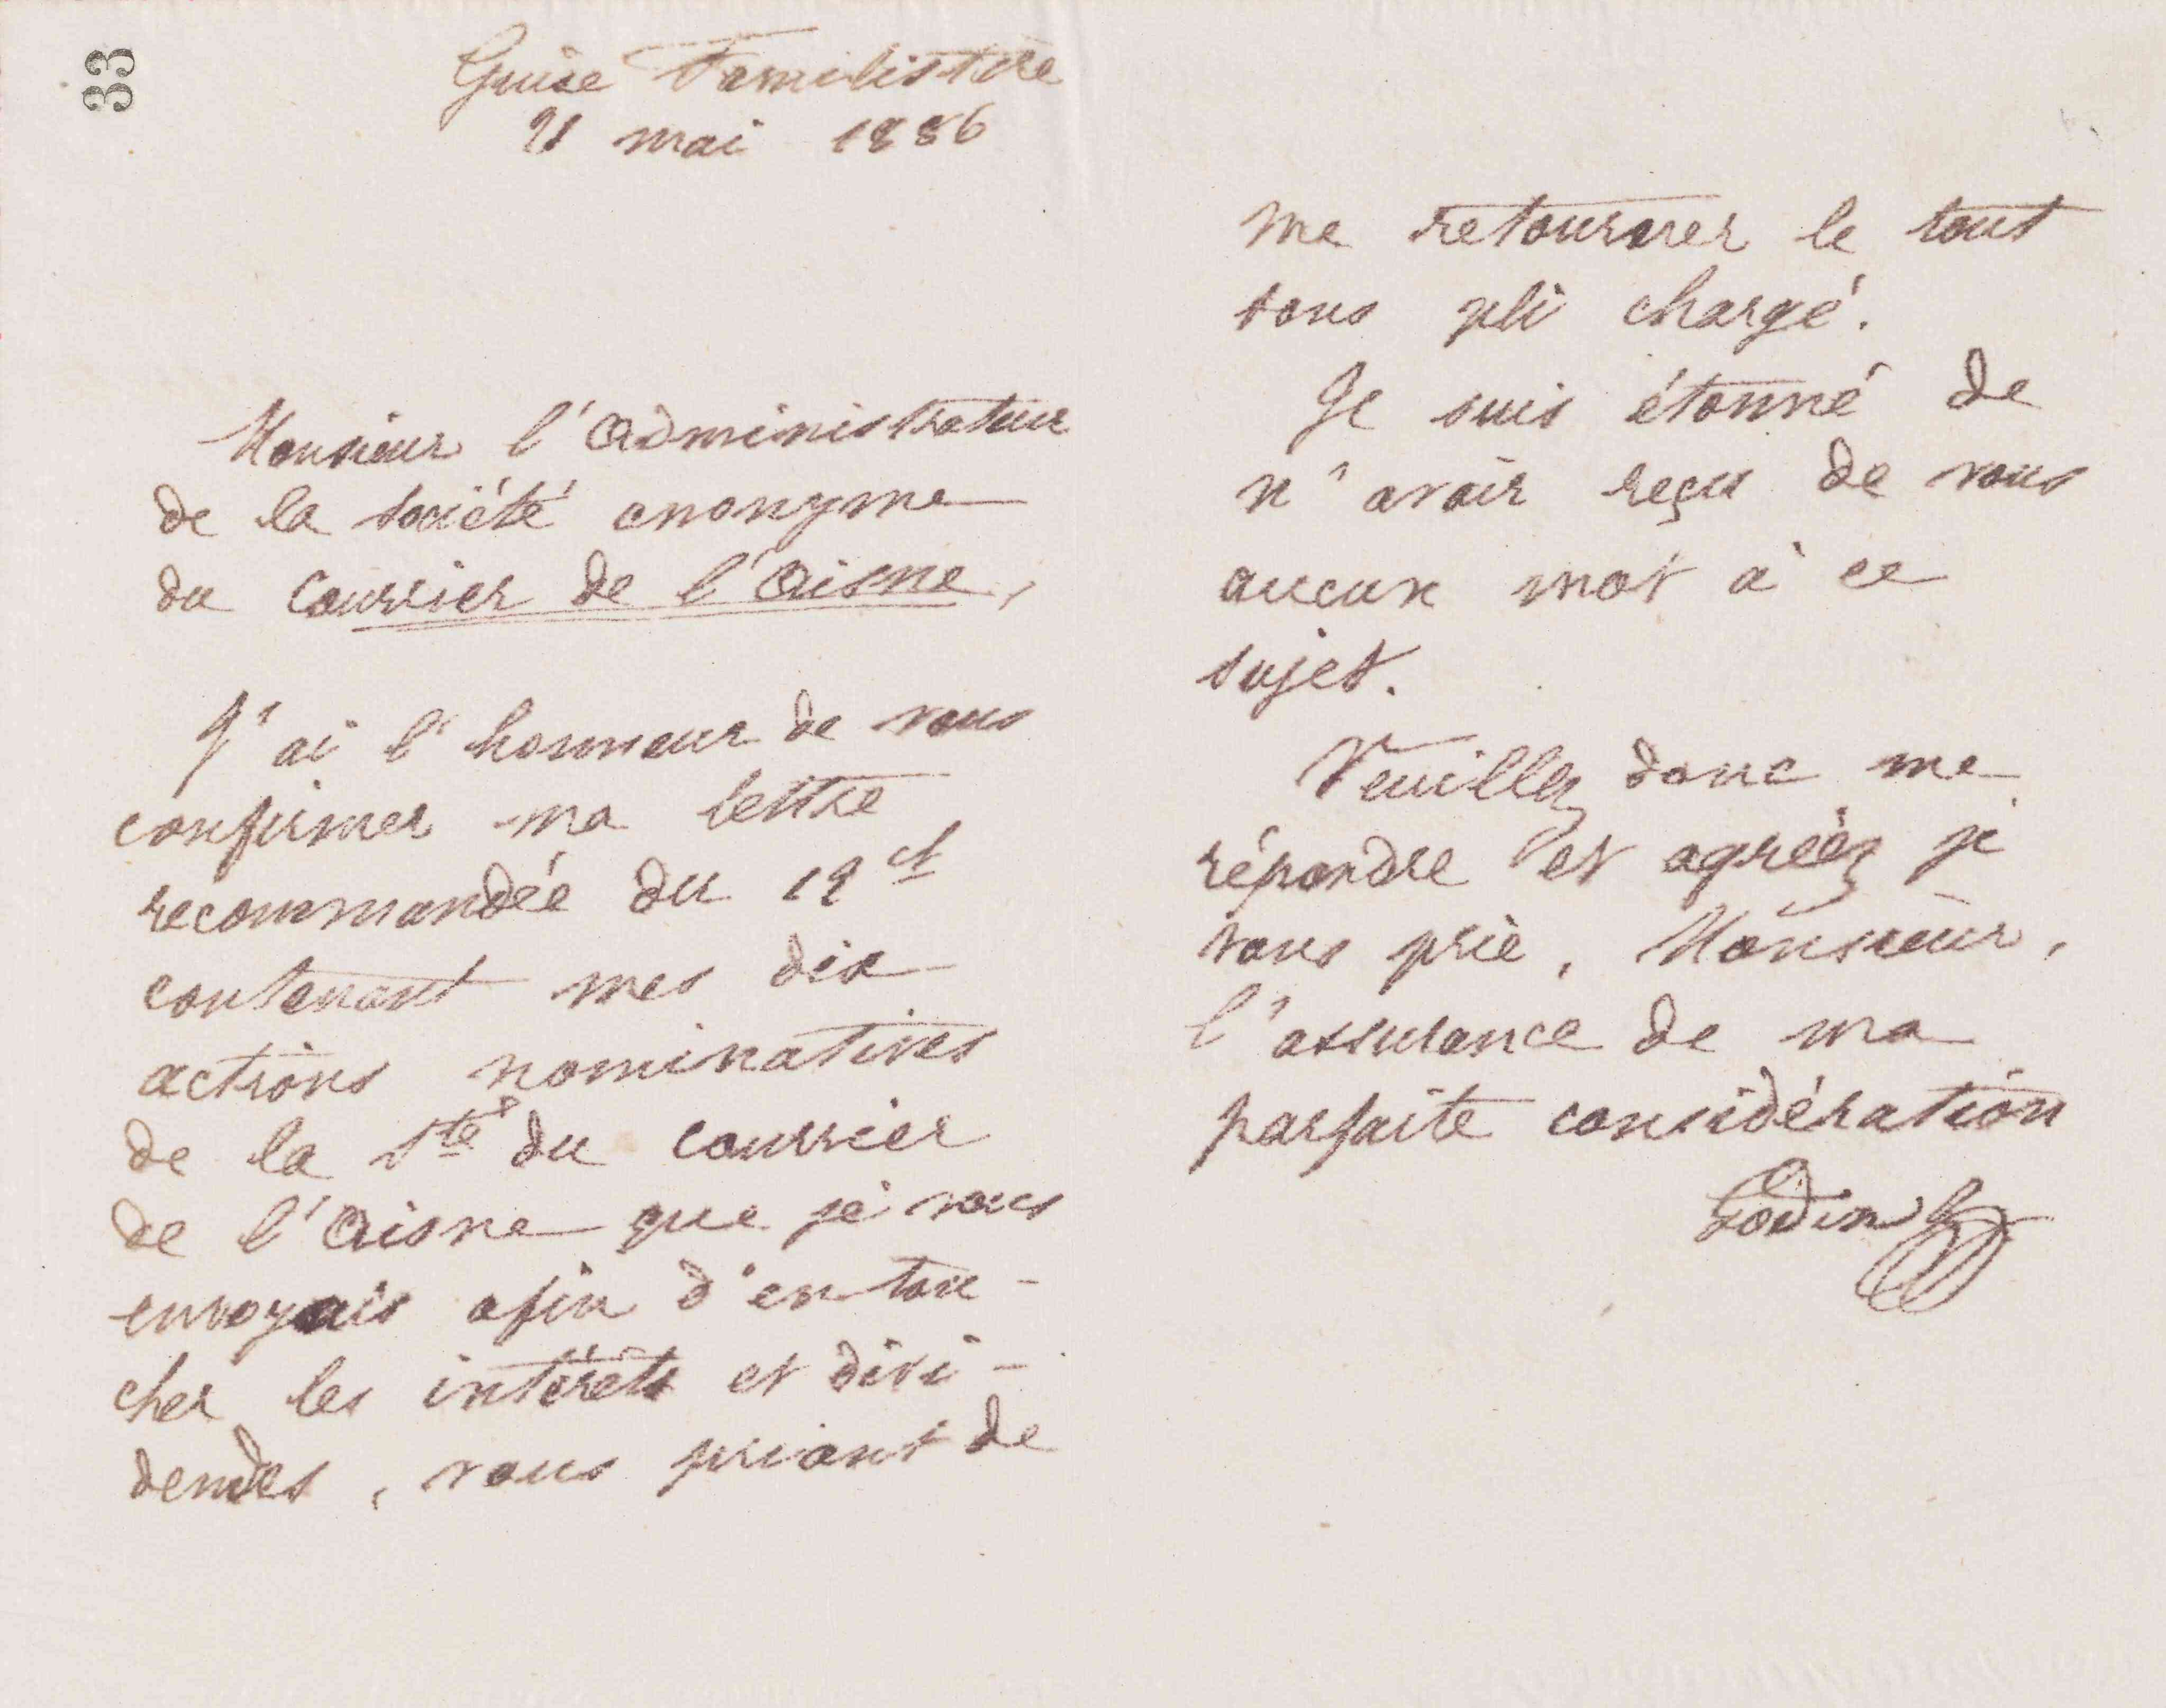 33
Guise Familistère
21 mai 1886
Monsieur l'Administrateur
de la société anonyme
du Courrier de l'Aisne,
J'ai l'honneur de vous
confirmer ma lettre
recommandée du 12 ct
contenant mes dix
actions nominatives
de la Sté du Courrier
de l'Aisne que je vous
envoyais afin d'en tou-
cher les intérêts et divi-
dendes, vous priant de
me retourner le tout
sous pli chargé.
Je suis étonné de
n'avoir reçu de vous
aucun mot à ce
sujet.
Veuillez donc me
répondre et agréez je
vous prie, Monsieur,
l'assurance de ma
parfaite considération
Godin